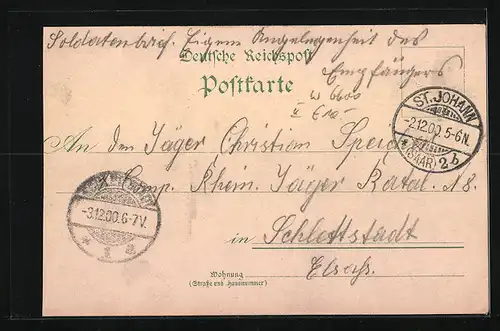 Soldatenbrief. Eigene Angelegenheit des
Empfängers
Deutsche Reichspost
Postkarte
ST. JOHANN
-2.12.00.5-6N.
* (SAAR) 2 b
An den Jäger Christian
Comp. Rhein. Jäger Batal. 8.
-3.12.00.6-7V.
* 1 a
in Schlettstadt
Elsass.
Wohnung
(Straße und Hausnummer)